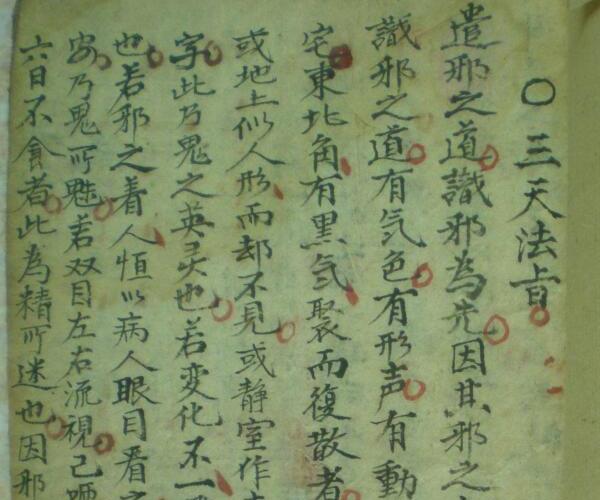 〇三天法旨
遣邪之道識邪為先因其邪之
識邪之道有気色有形声有動
宅東北角有黑気聚而復散者
或地上似人形而却不見或静室作
字此乃鬼之英灵也若变化不一
也若邪之着人恒以病人眼目看
安乃鬼所魅若双目左右流視己
六日不食者此為精所迷也因邪